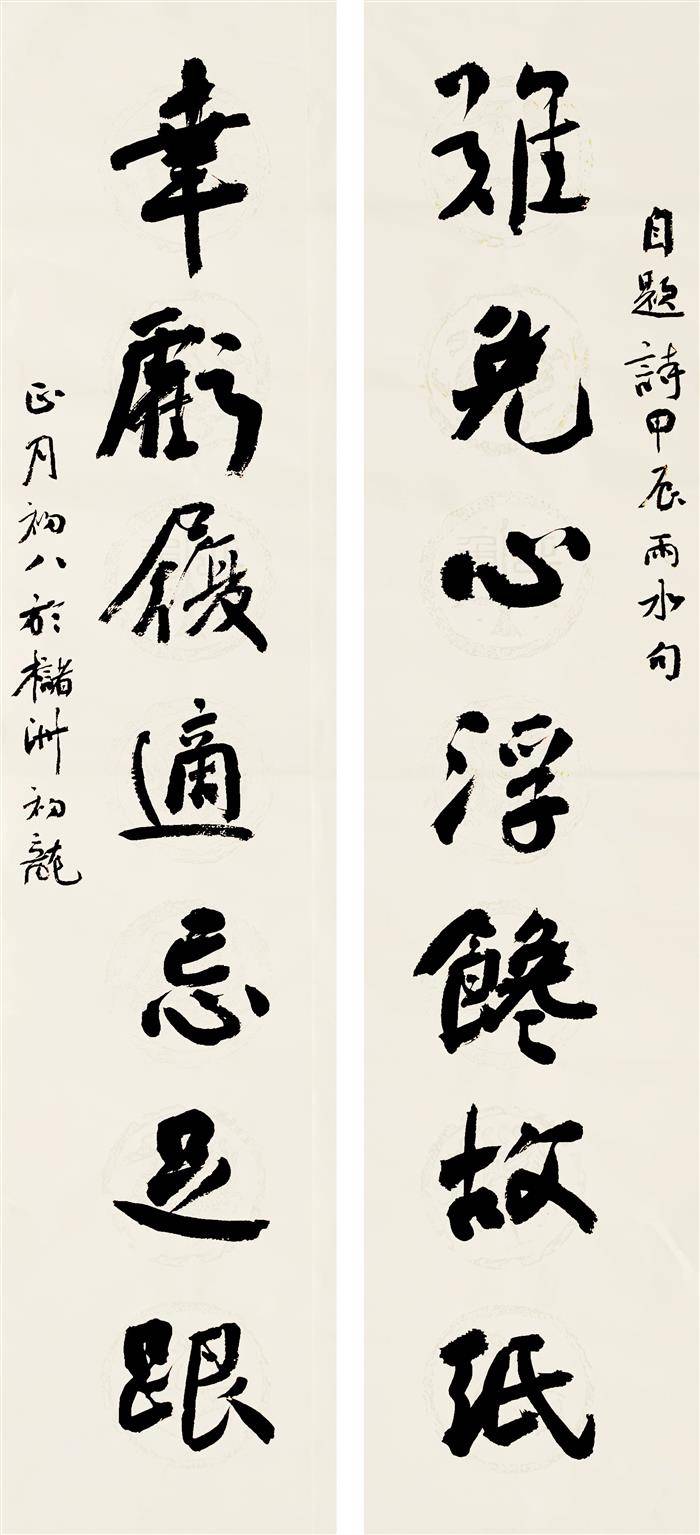 自題詩甲辰雨水句
难免心浮饞故紙
幸虧履適忘足跟
正月初八於櫧洲初龍